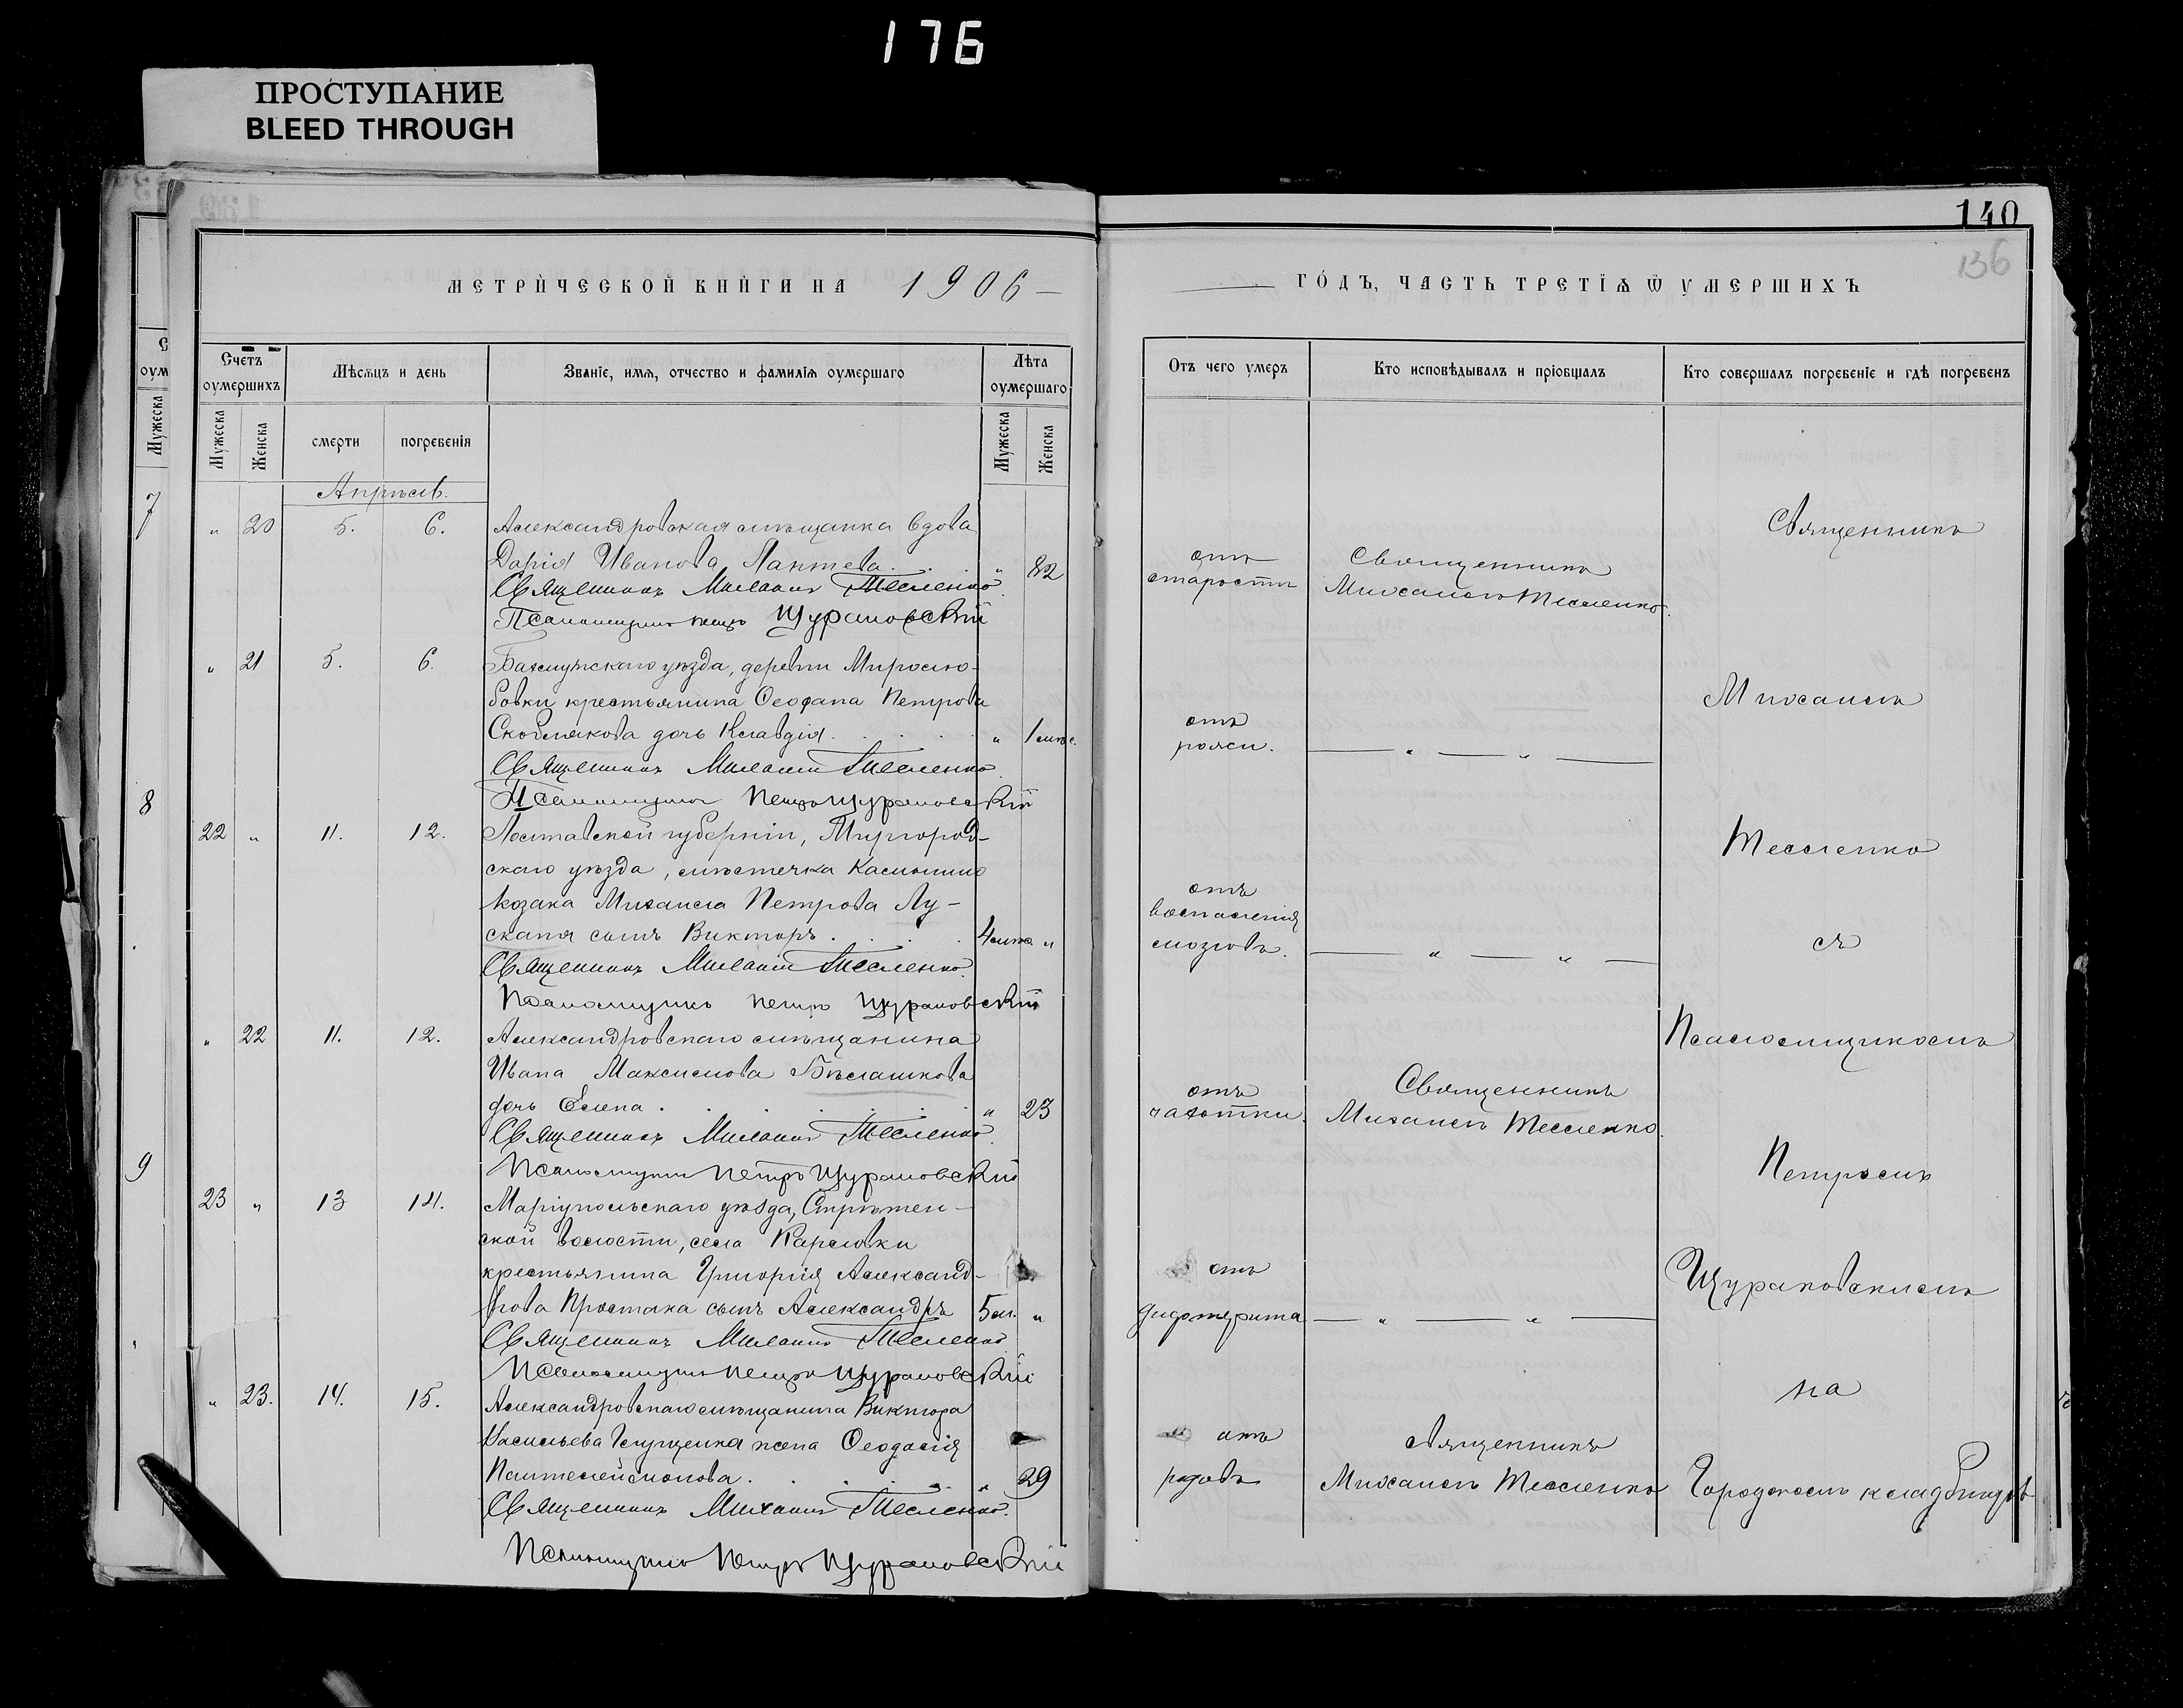 176
ПРОСТУПАНИЕ
BLEED THROUGH
140
136
МЕТРИЧЕСКОЙ КНИГИ НА 1906
ГОДЪ, ЧАСТЬ ТРЕТІѦ Ѿ УМЕРШИХЪ
Счетъ оумершихъ
Мѣсяцъ и день
Званіе, имя, отчество и фамилія оумершаго
Лѣта оумершаго
Мужеска
Женска
смерти
погребенія
Мужеска
Женска
Отъ чего умеръ
Кто исповѣдывалъ и пріобщалъ
Кто совершалъ погребеніе и гдѣ погребенъ
Апрѣль.
" 20 5. 6. Александровская мѣщанка вдова
Дарія Иванова Лаптева . . " 82
Священникъ Михаилъ Тесленко.
Псаломщикъ Петръ Щурановскій
отъ
старости
Священникъ
Михаилъ Тесленко.
" 21 5. 6. Бахмутскаго уѣзда, деревни Миролю-
бовки крестьянина Ѳеофана Петрова
дочь Клавдія . . . . " 1 мѣс.
Священникъ Михаилъ Тесленко.
Псаломщикъ Петръ Щурановскій
отъ
рожи.
— " — " —
22 " 11. 12. Полтавской губерніи, Миргород-
скаго уѣзда, мѣстечка
козака Михаила Петрова Лу-
сканя сынъ Викторъ . . . . 4 мѣс. "
Священникъ Михаилъ Тесленко.
Псаломщикъ Петръ Щурановскій
отъ
воспаленія
мозговъ.
— " — " —
" 22 11. 12. Александровскаго мѣщанина
Ивана Максимова Бѣлашкова
дочь Елена . . . . . " 23
Священникъ Михаилъ Тесленко.
Псаломщикъ Петръ Щурановскій
отъ
чахотки.
Священникъ
Михаилъ Тесленко.
23 " 13 14. Маріупольскаго уѣзда, Стрѣтен-
ской волости, села Карловки
крестьянина Григорія Александ-
рова Простака сынъ Александръ 5 м. "
Священникъ Михаилъ Тесленко
Псаломщикъ Петръ Щурановскій
отъ
дифтерита
— " — " —
" 23. 14. 15. Александровскаго мѣщанина Виктора
Васильева Глущенка жена Ѳеодосія
Пантелеймонова . . . . . " 29
Священникъ Михаилъ Тесленко.
Псаломщикъ Петръ Щурановскій
отъ
родовъ
Священникъ
Михаилъ Тесленко
Священникъ
Михаилъ
Тесленко
съ
Псаломщикомъ
Петромъ
Щурановскимъ
на
Городскомъ кладбищѣ
7
8
9